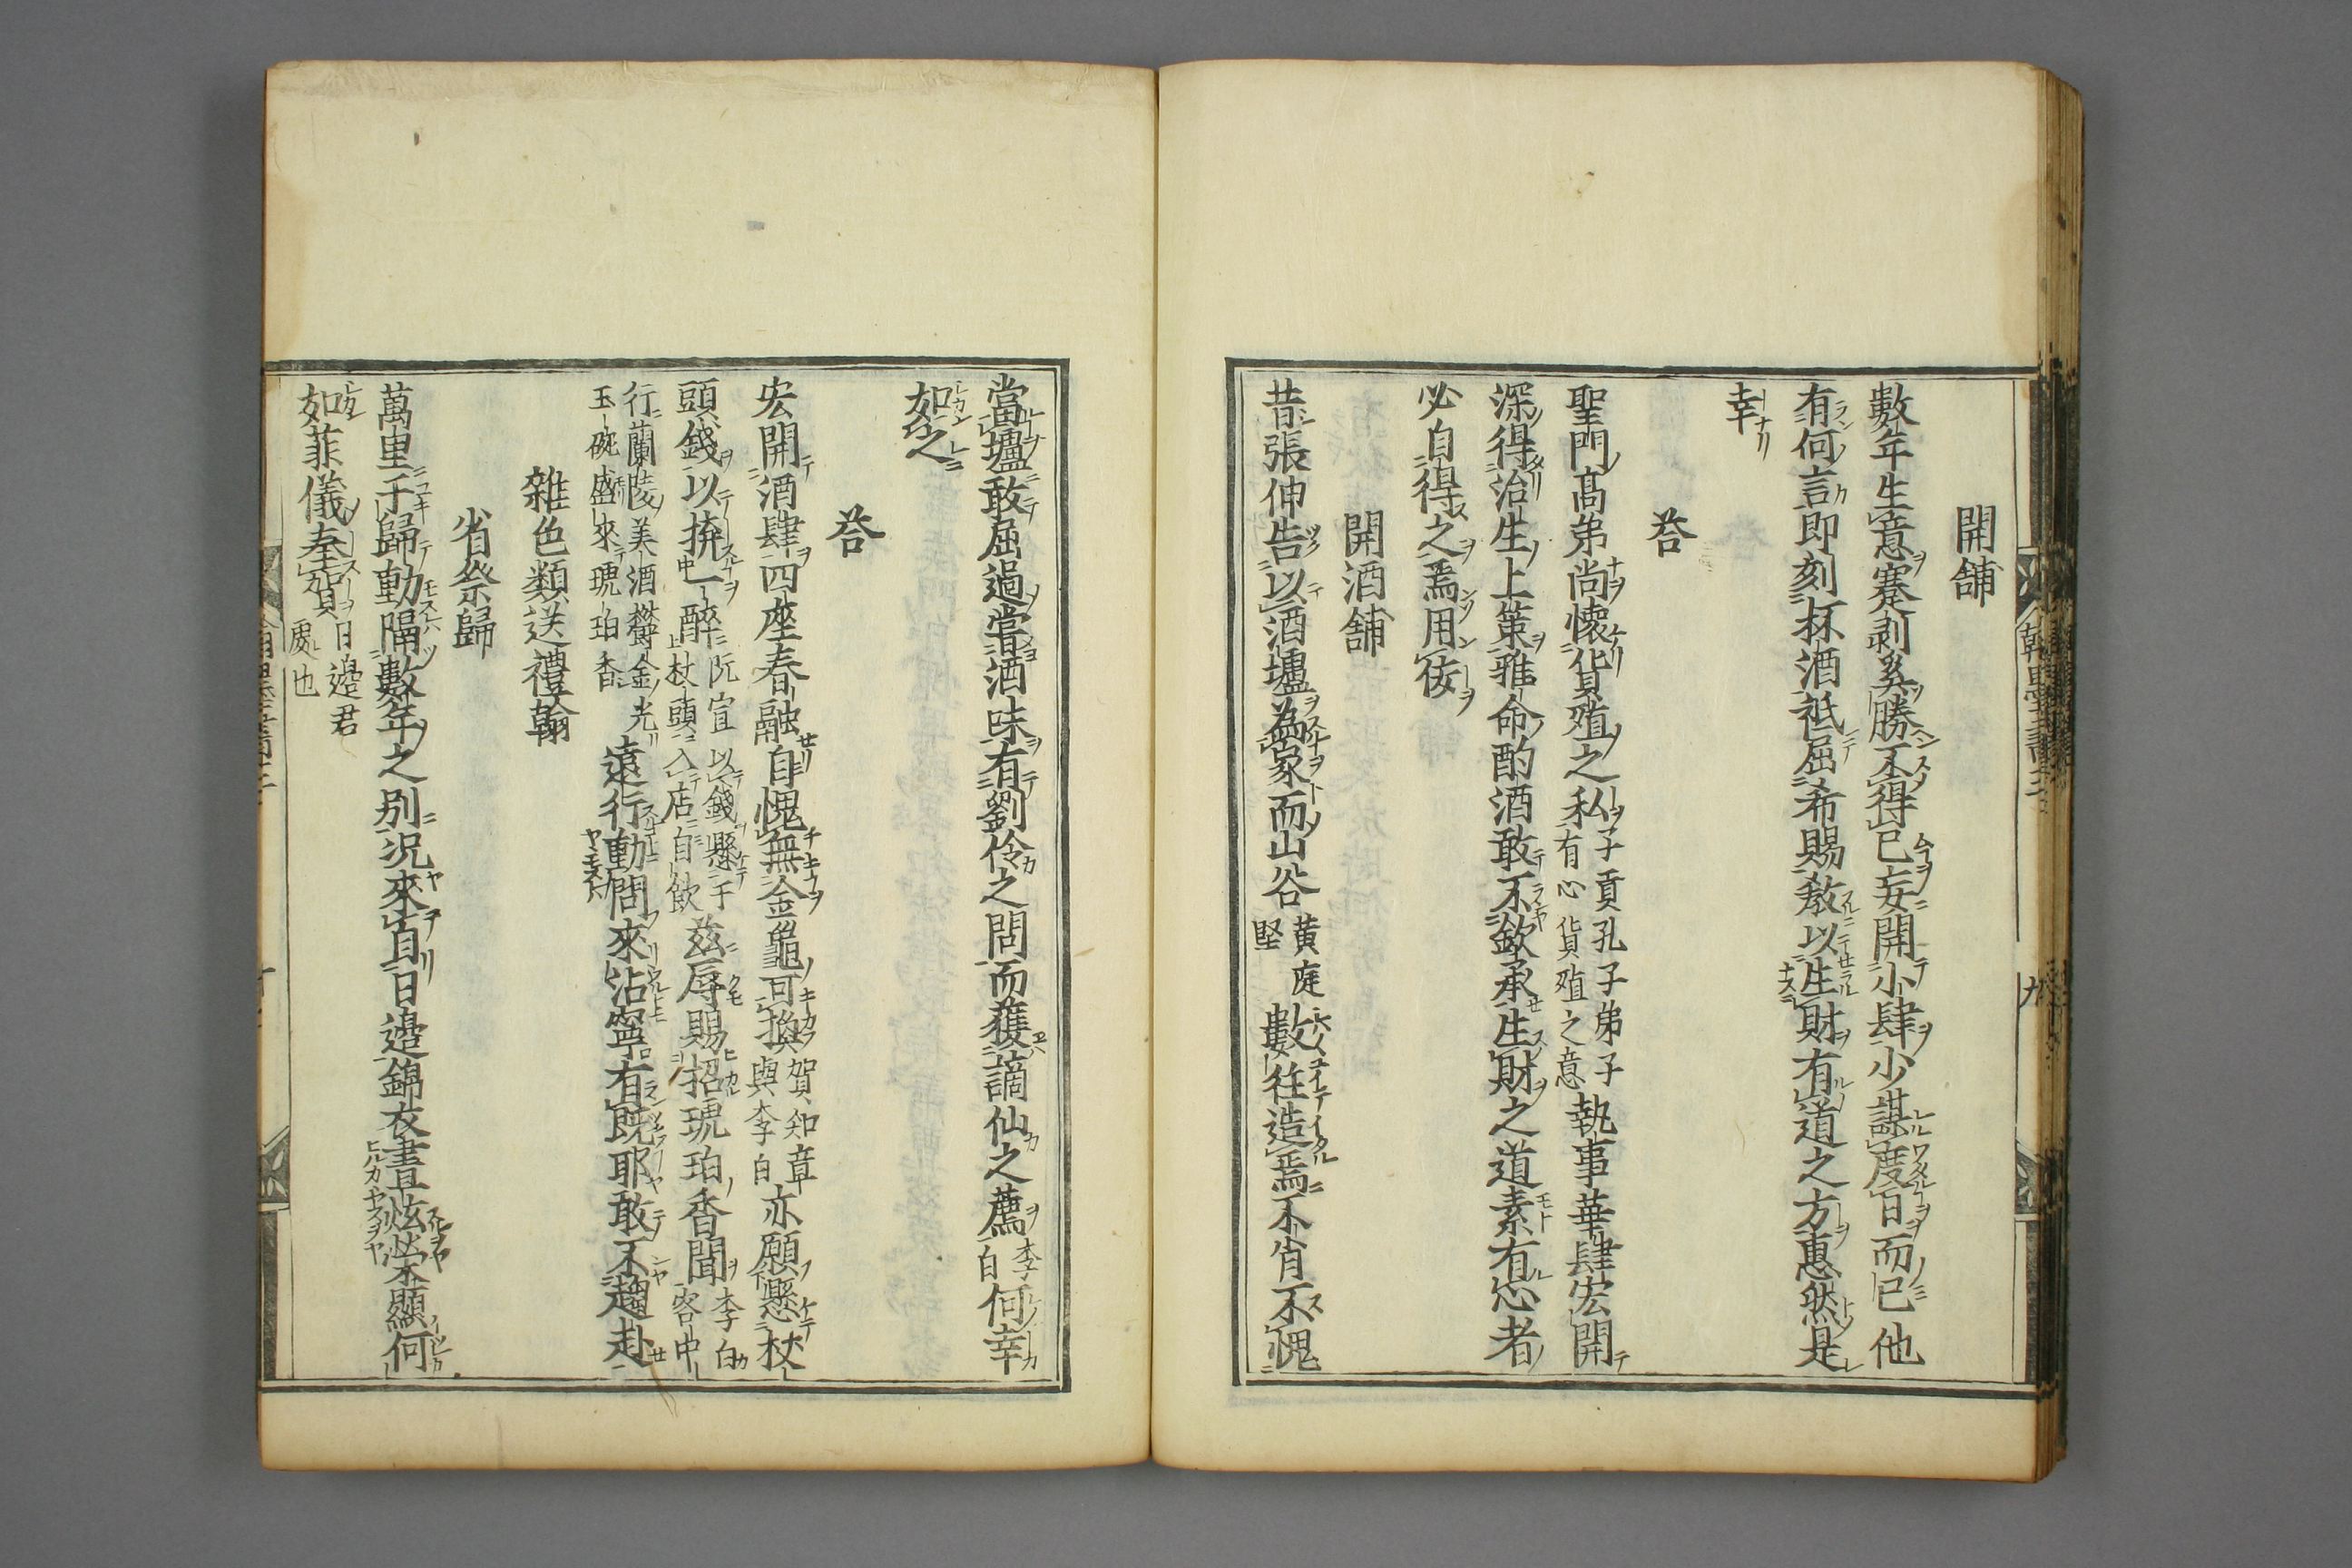 開舖
數年生意蹇剥奚勝不得已妄開小肆少謀度日而已他
有何言即刻杯酒祗屈希賜敎以生財有道之方惠然是
幸
荅
聖門髙弟尚懷貨殖之私子貢孔子弟子有心貨殖之意執事華肆宏開
深得治生上策雅命酌酒敢不欽承生財之道素有心者
必自得之焉用佞
開酒舖
昔張伸告以酒壚為家而山谷黃庭堅數往造焉不肖不愧
當壚敢屈過嘗酒味有劉伶之問而獲謫仙之薦李白何幸
如之
荅
宏開酒肆四座春融自愧無金龜可換賀知章與李白亦願懸杖
頭錢以捹一醉阮宣以錢懸于杖頭入店自飲兹辱賜招琥珀香聞李白客中
行蘭陵美酒欎金光玉碗盛來琥珀香遠行動問來沽寧有既耶敢不趨赴
雜色類送禮翰
省祭歸
萬里于歸動隔數年之别况來自日邉錦衣晝炫榮顯何
如菲儀奉賀日邉君處也